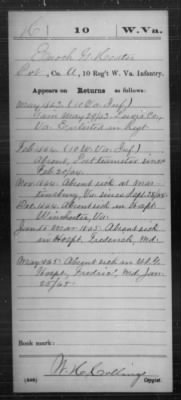 K 10 W.Va.
Enoch G. Hoster
Pvt., Co. A, 10 Reg't W. Va. Infantry.
Appears on Returns as follows:
May 1863 (10 Va. Inf)
Gain May 29/63 Lewis Co.
Va. Enlisted in Regt
Feb. 1864 (10 W. Va. Inf)
Absent, Post teamster since
Feb 20/64.
Nov. 1864. Absent sick at Mar-
tinsburg, Va. since Sept. 28/64
Dec. 1864. Absent sick in Hospt.
Winchester, Va.
Jan. to Mar. 1865. Absent sick
in Hospt. Frederick, Md.
May 1865. Absent sick in U.S.G.
Hospt., Fredric, Md, Jan.
25/65
Book mark:
(546)
W. H. Colling
Copyist.